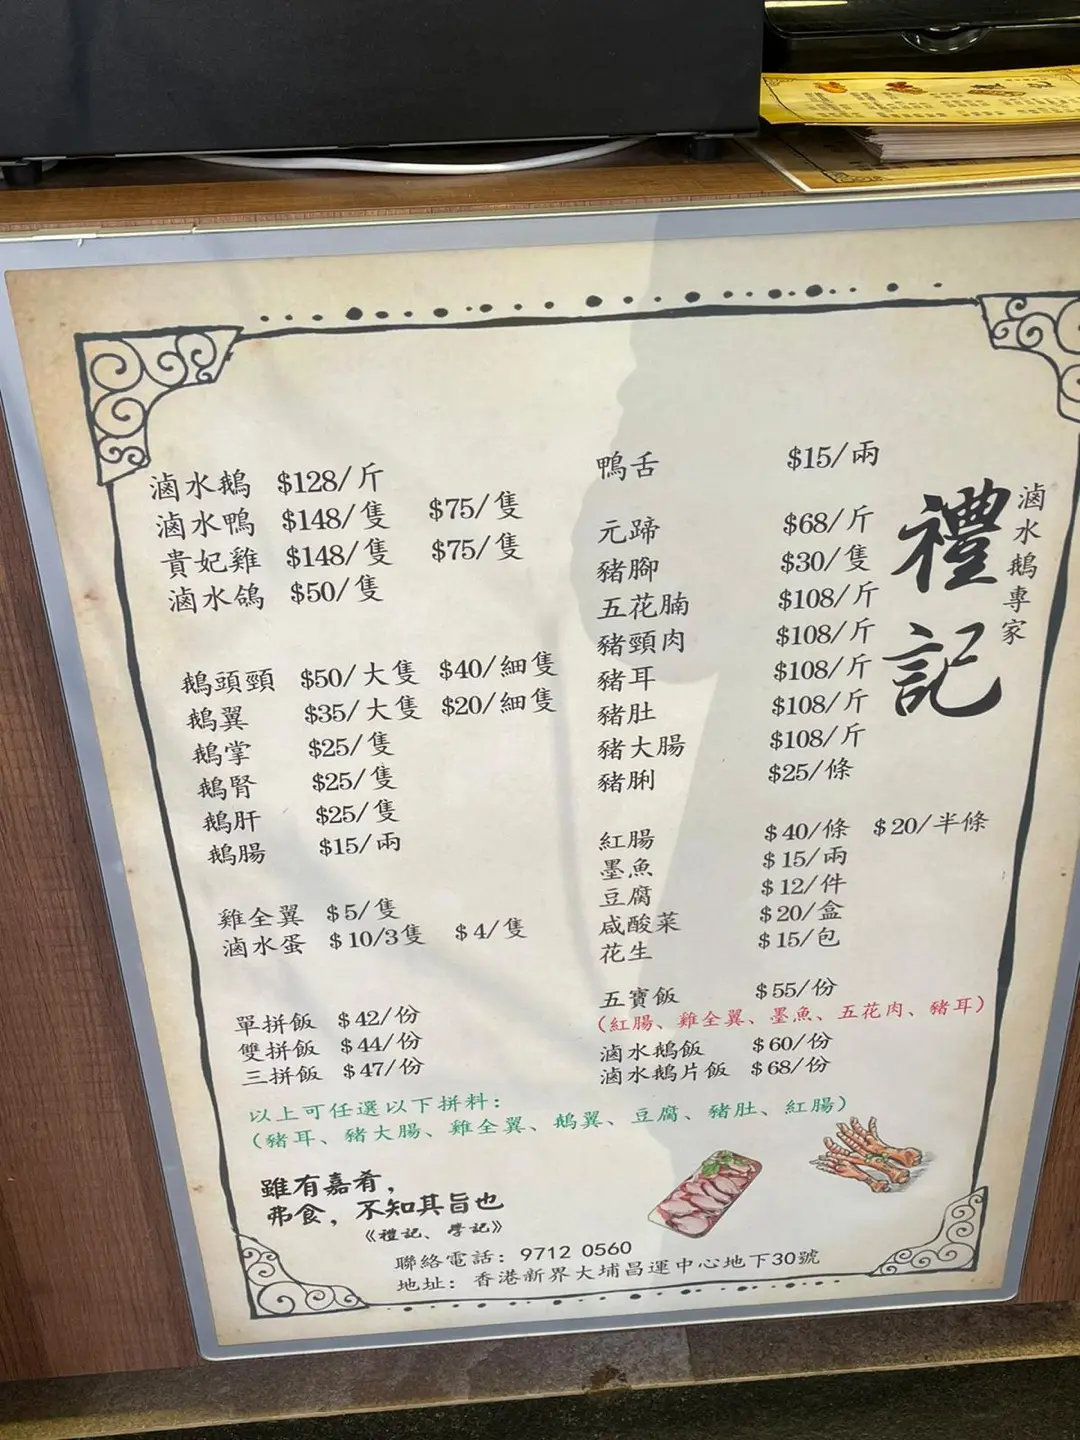 滷水鵝 $128/斤
滷水鴨 $148/隻 $75/隻
貴妃雞 $148/隻 $75/隻
滷水鴿 $50/隻
鵝頭頸 $50/大隻 $40/細隻
鵝翼 $35/大隻 $20/細隻
鵝掌 $25/隻
鵝腎 $25/隻
鵝肝 $25/隻
鵝腸 $15/兩
雞全翼 $5/隻
滷水蛋 $10/3隻 $4/隻
單拼飯 $42/份
雙拼飯 $44/份
三拼飯 $47/份
以上可任選以下拼料：
（豬耳、豬大腸、雞全翼、鵝翼、豆腐、豬肚、紅腸）
鴨舌 $15/兩
元蹄 $68/斤
豬腳 $30/隻
五花腩 $108/斤
豬頸肉 $108/斤
豬耳 $108/斤
豬肚 $108/斤
豬大腸 $108/斤
豬脷 $25/條
紅腸 $40/條 $20/半條
墨魚 $15/兩
豆腐 $12/件
咸酸菜 $20/盒
花生 $15/包
五寶飯 $55/份
（紅腸、雞全翼、墨魚、五花肉、豬耳）
滷水鵝飯 $60/份
滷水鵝片飯 $68/份
滷水鵝專家
禮記
雖有嘉肴，
弗食，不知其旨也
《禮記、學記》
聯絡電話：9712 0560
地址：香港新界大埔昌運中心地下30號